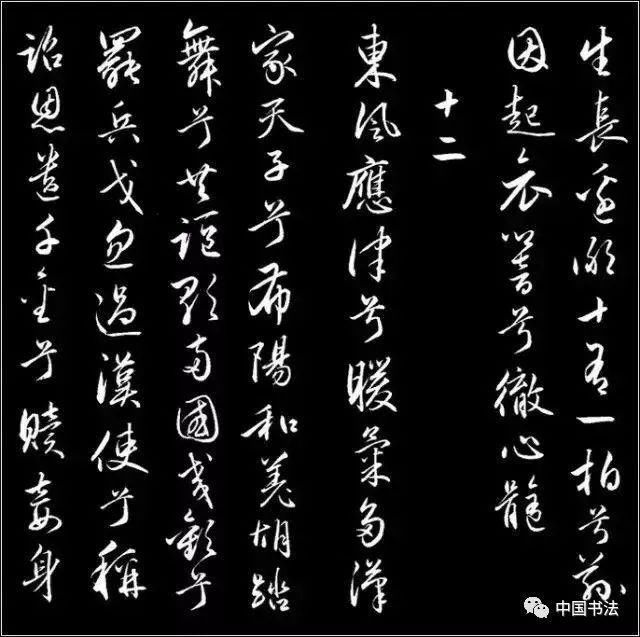 生長邊鄙十有一拍兮茲
因起哀響兮徹心髓
十二
東風應律兮暖氣多漢
家天子兮布陽和羌胡蹈
舞兮共謳歌兩國交歡兮
罷兵戈忽遇漢使兮稱
詔恩遺千金兮贖妾身
中国书法